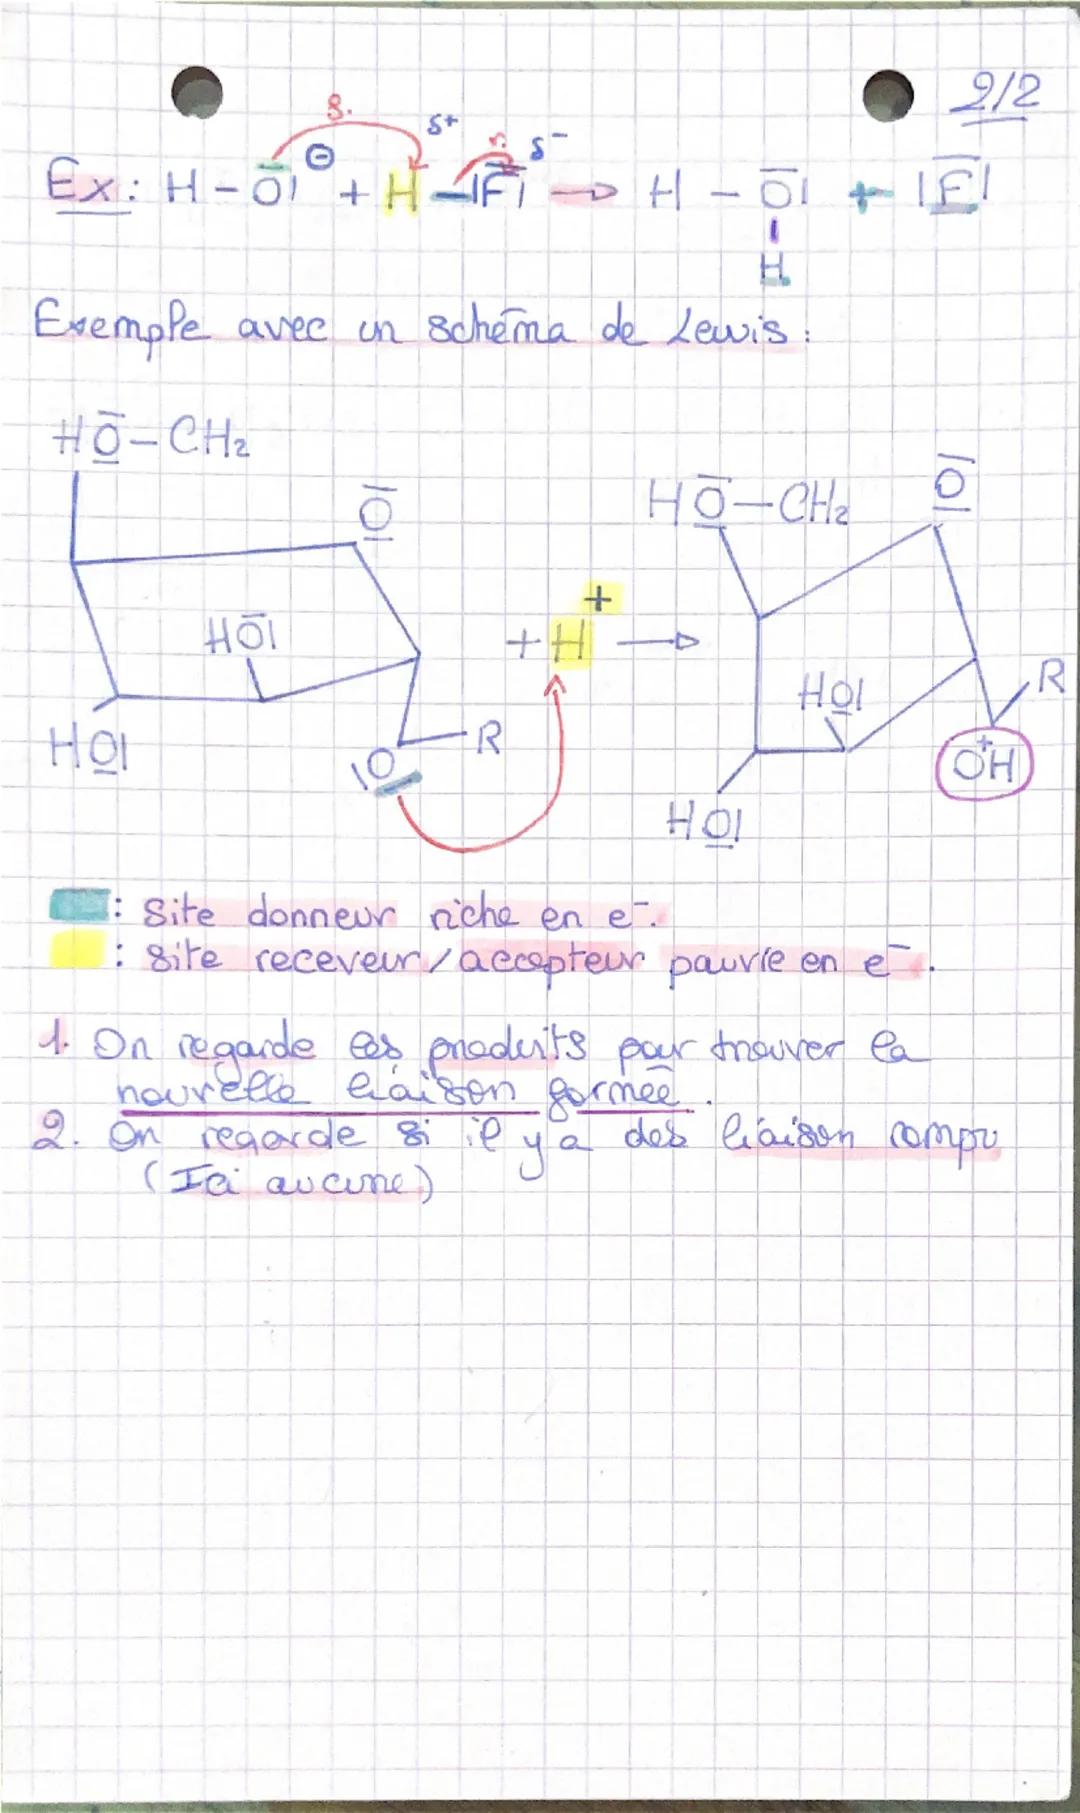 2/2
Ex: H - O̅| ⊖ + H - |F̅| → H - O̅| + |F̅|
H
Exemple avec un schéma de Lewis :
HO̅ - CH₂
O̅
HO̅|
HO̲|
|O
R
+ H⁺ →
HO̅ - CH₂
O̅
HO̲|
R
O⁺H
HO̲|
: Site donneur riche en e⁻.
: site receveur/accepteur pauvre en e⁻.
1. On regarde les produits pour trouver la
nouvelle liaison formée.
2. On regarde si il y a des liaison rompu
(Ici aucune)